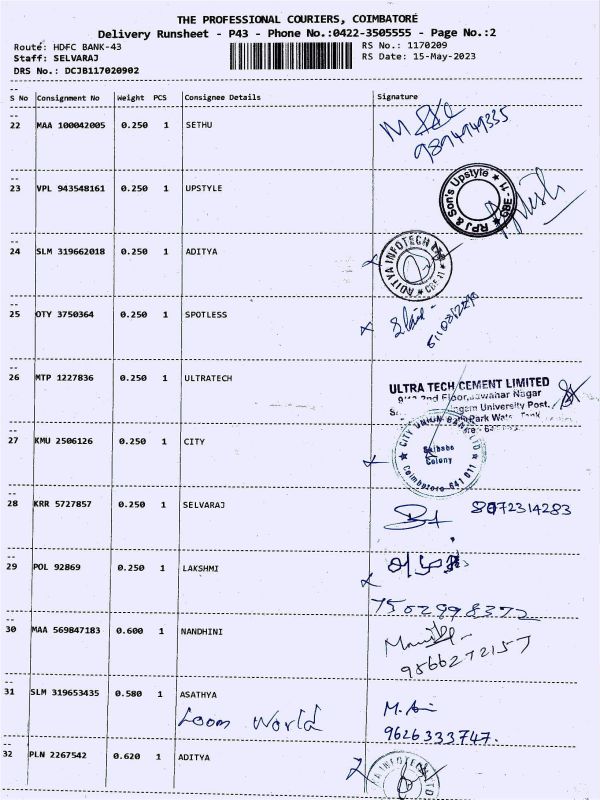 THE PROFESSIONAL COURIERS, COIMBATORE
Delivery Runsheet - P43 - Phone No.:0422-3505555 - Page No.:2
Route: HDFC BANK-43
RS No.: 1170209
Staff: SELVARAJ
RS Date: 15-May-2023
DRS No.: DCJB117020902
S No Consignment No Weight PCS Consignee Details Signature
22 MAA 100042005 0.250 1 SETHU
9894949335
23 VPL 943548161 0.250 1 UPSTYLE
RPJ & Son's Upstyle ★ CBE - 11 ★
24 SLM 319662018 0.250 1 ADITYA
ADITYA INFOTECH LTD ★ CBE-11 ★
25 OTY 3750364 0.250 1 SPOTLESS
26 MTP 1227836 0.250 1 ULTRATECH
ULTRA TECH CEMENT LIMITED
2nd Floor, Jawahar Nagar
University Post,
Park
27 KMU 2506126 0.250 1 CITY
CITY UNION BANK LTD
Saibaba
Colony
Coimbatore 641 011
28 KRR 5727857 0.250 1 SELVARAJ
8072314283
29 POL 92869 0.250 1 LAKSHMI
7502998372
30 MAA 569847183 0.600 1 NANDHINI
9566272157
31 SLM 319653435 0.580 1 ASATHYA
Loom World
9626333747.
32 PLN 2267542 0.620 1 ADITYA
INFOTECH LTD